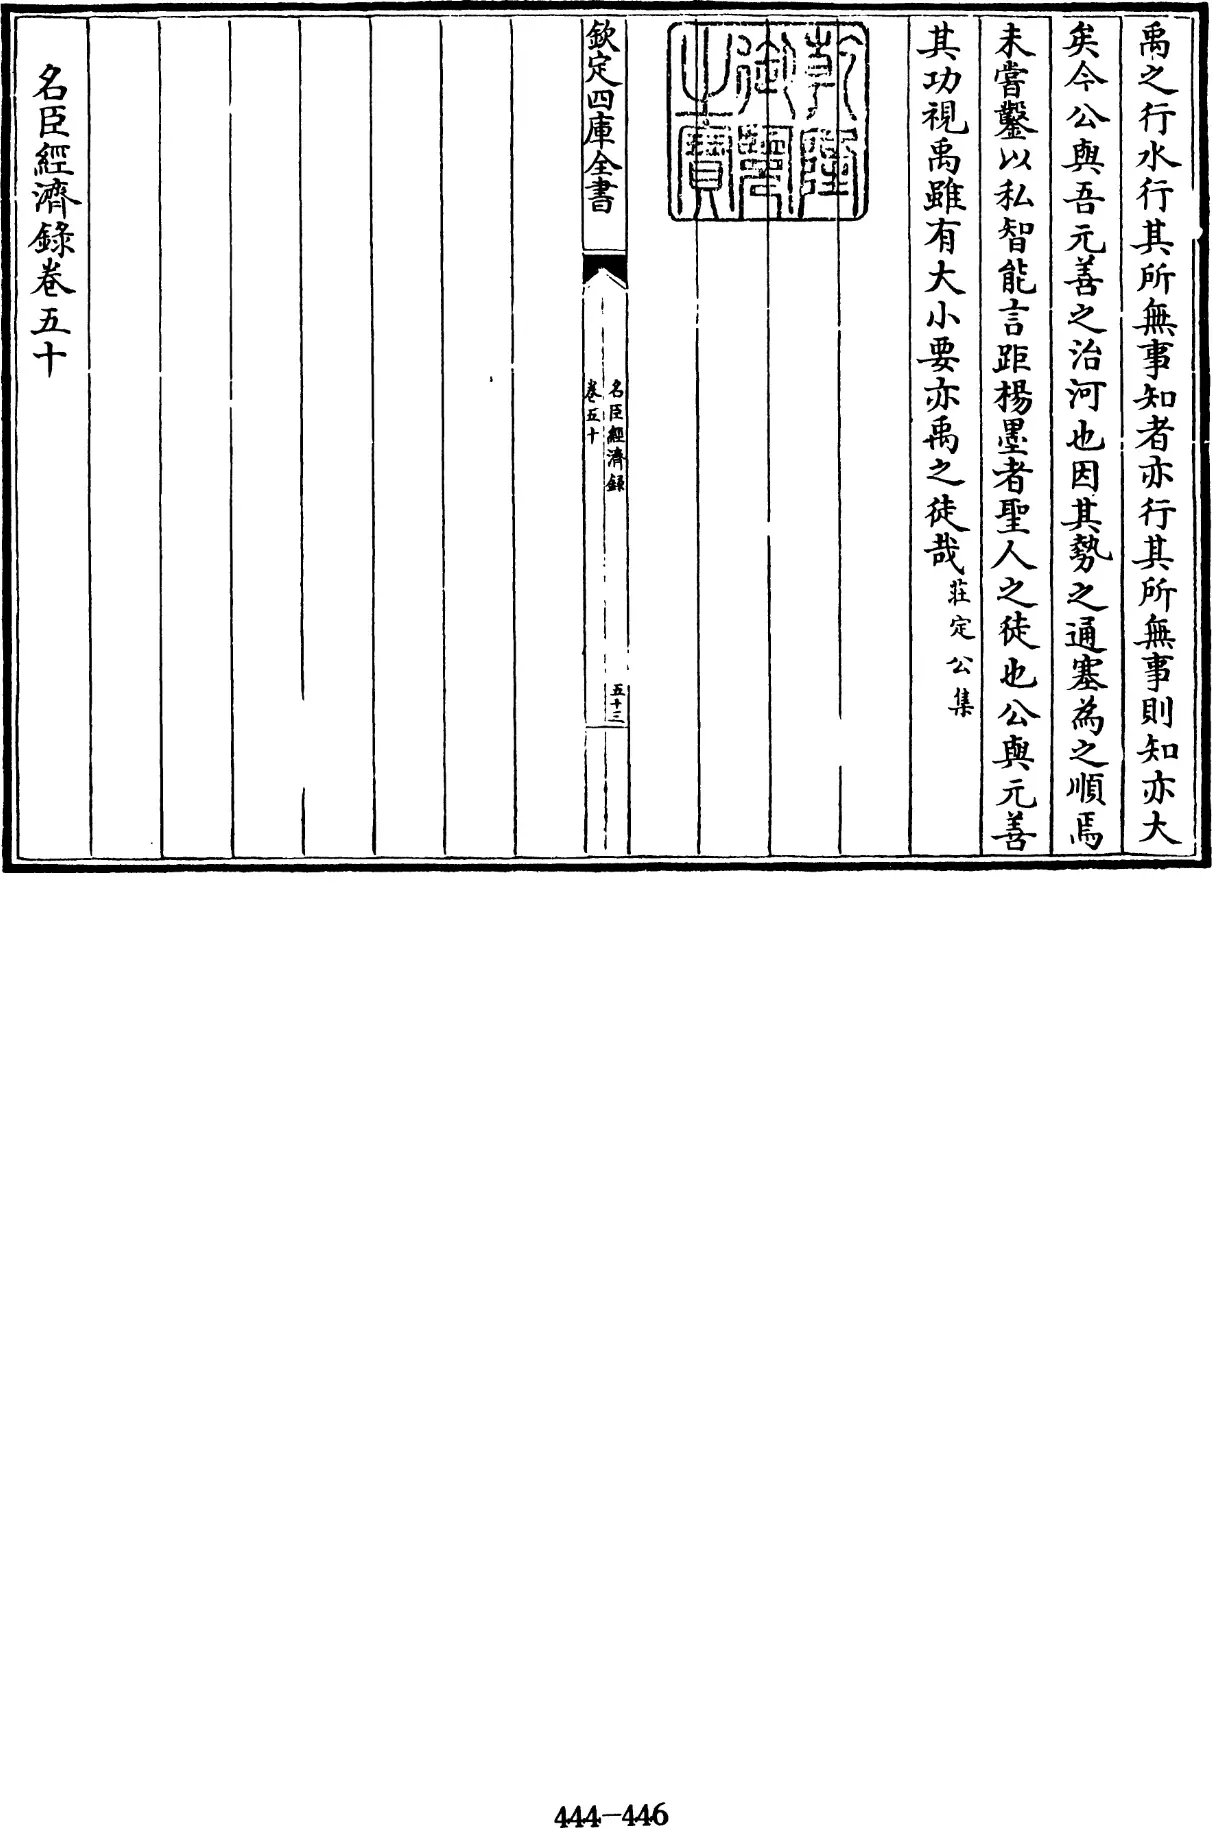 禹之行水行其所無事知者亦行其所無事則知亦大
矣今公與吾元善之治河也因其勢之通塞為之順焉
未嘗鑿以私智能言距楊墨者聖人之徒也公與元善
其功視禹雖有大小要亦禹之徒哉莊定公集
乾隆
御覽
之寶
欽定四庫全書
名臣經濟錄
卷五十
五十三
名臣經濟錄卷五十
444-446